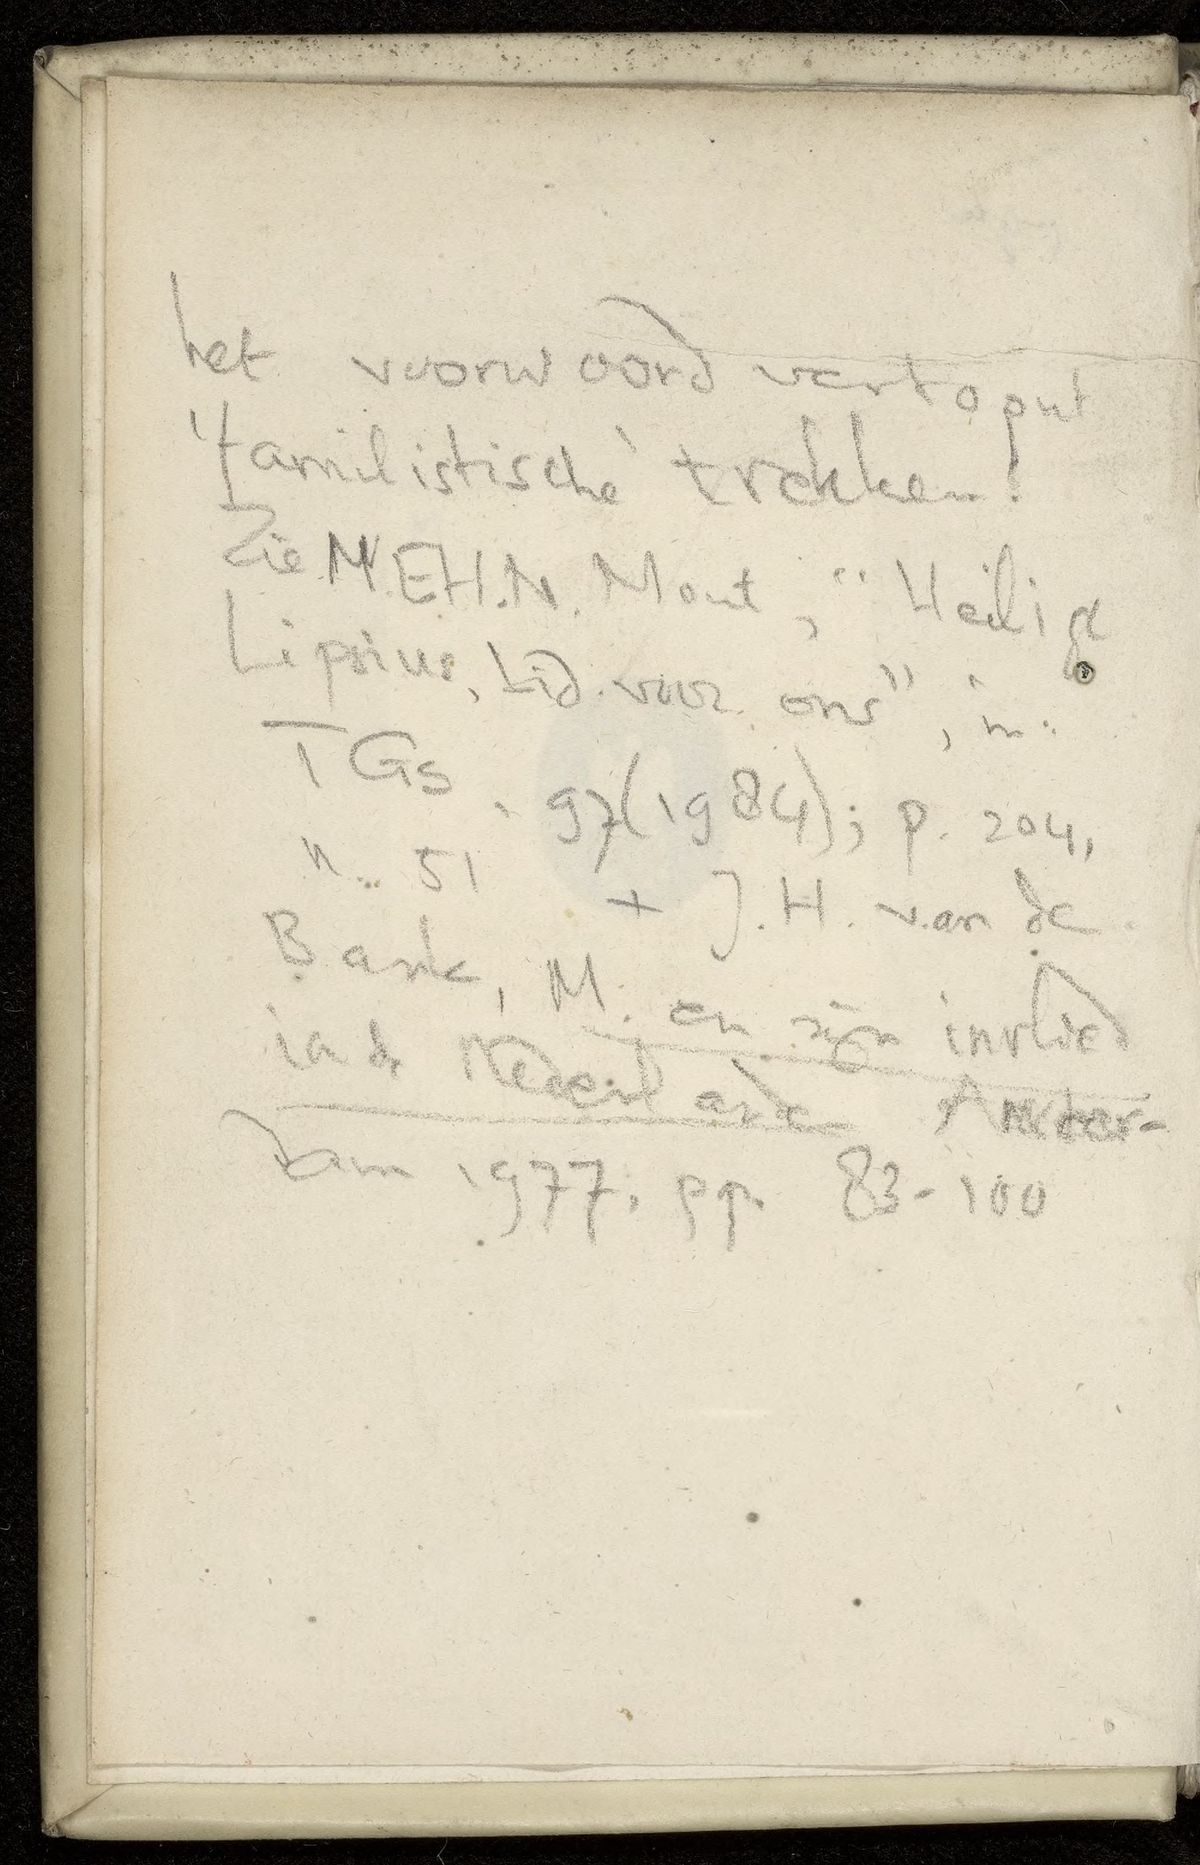 het voorwoord vertoont
'familistische' trekken!
Zie M.E.H.N. Mout, "Heilige
Lipsius, bid voor ons", in:
TGs, 97(1984); p. 204,
n. 51 + J.H. van de
Bank, M. en zijn invloed
in de Nederlanden Amster-
dam 1977, pp. 83-100